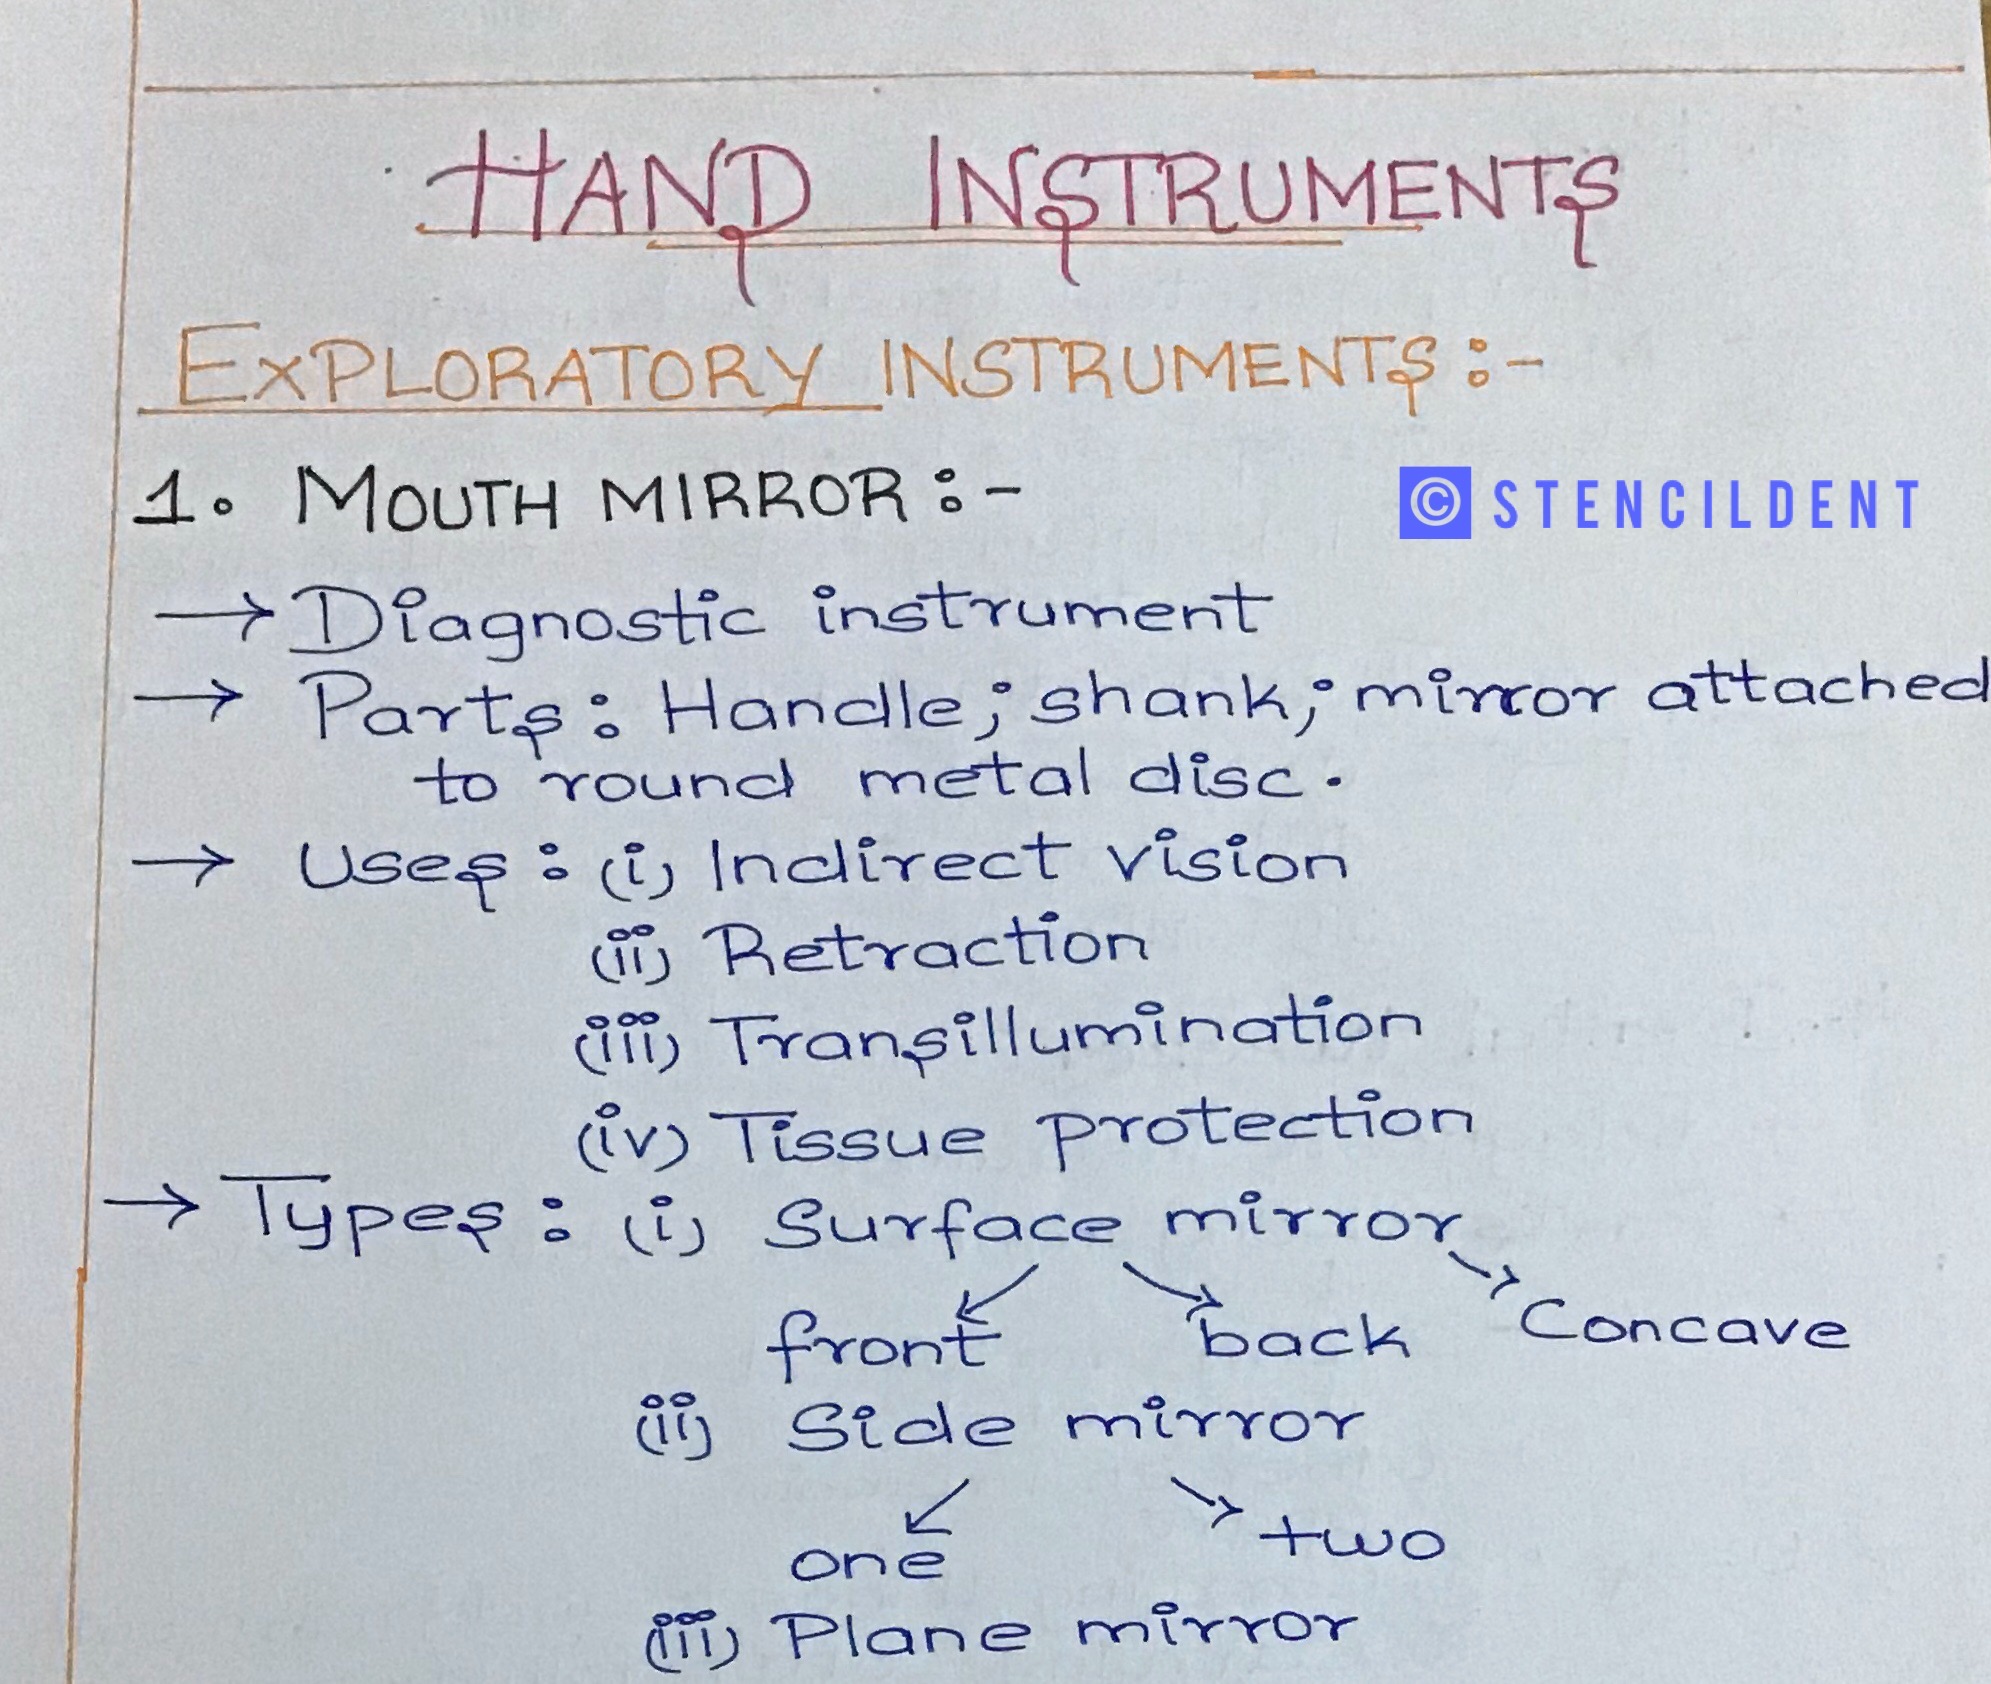 HAND INSTRUMENTS
EXPLORATORY INSTRUMENTS :-
1. MOUTH MIRROR :-
© STENCILDENT
→ Diagnostic instrument
→ Parts : Handle ; shank ; mirror attached
to round metal disc .
→ Uses : (i) Indirect vision
(ii) Retraction
(iii) Transillumination
(iv) Tissue protection
→ Types : (i) Surface mirror
front back Concave
(ii) Side mirror
one two
(iii) Plane mirror